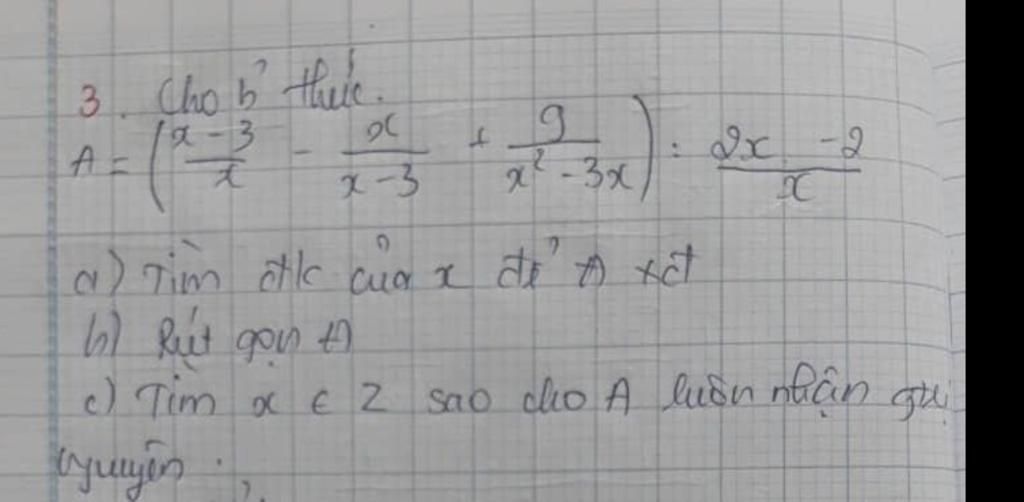 3. Cho b' thức.
A = ( (x-3)/x - x/(x-3) + 9/(x² - 3x) ) : (2x - 2)/x
a) Tìm đk của x để A xđ
b) Rút gọn A
c) Tìm x ∈ Z sao cho A luôn nhận gtrị
nguyên.